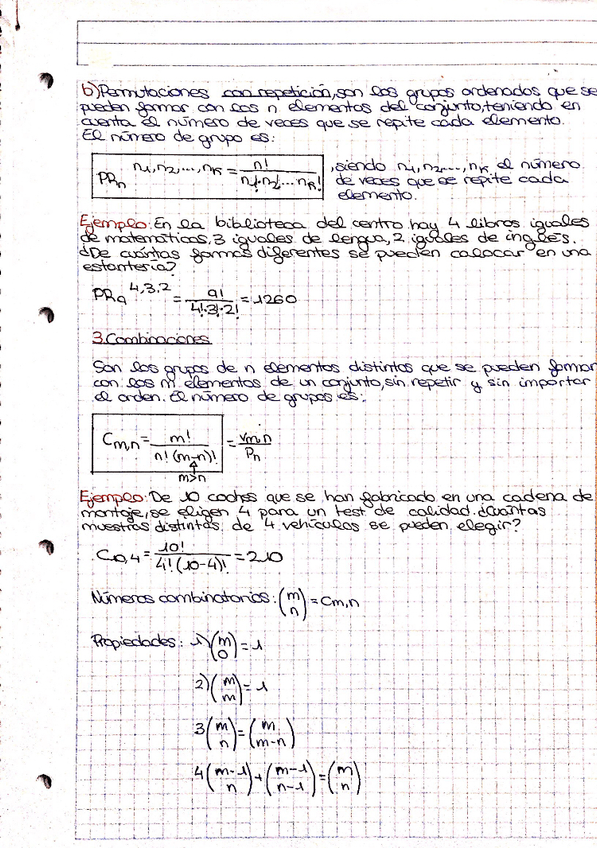 b) Permutaciones con repetición, son los grupos ordenados que se
pueden formar con los n elementos del conjunto, teniendo en
cuenta el número de veces que se repite cada elemento.
El número de grupo es:
PRₙ^(n₁,n₂,...,nₖ) = n! / (n₁!·n₂!...nₖ!) , siendo n₁,n₂,...,nₖ el número
de veces que se repite cada
elemento.
Ejemplo: En la biblioteca del centro hay 4 libros iguales
de matemáticas, 3 iguales de lengua, 2 iguales de inglés.
¿De cuántas formas diferentes se pueden colocar en una
estantería?
PR₉^(4,3,2) = 9! / (4!·3!·2!) = 1260
3. Combinaciones
Son los grupos de n elementos distintos que se pueden formar
con los m elementos de un conjunto, sin repetir y sin importar
el orden. El número de grupos es:
Cm,n = m! / (n!(m-n)!) = Vm,n / Pn
m>n
Ejemplo: De 10 coches que se han fabricado en una cadena de
montaje, se eligen 4 para un test de calidad. ¿Cuántas
muestras distintas de 4 vehículos se pueden elegir?
C10,4 = 10! / (4!(10-4)!) = 210
Números combinatorios: (m n) = Cm,n
Propiedades: 1) (m 0) = 1
2) (m m) = 1
3 (m n) = (m m-n)
4 (m-1 n) + (m-1 n-1) = (m n)